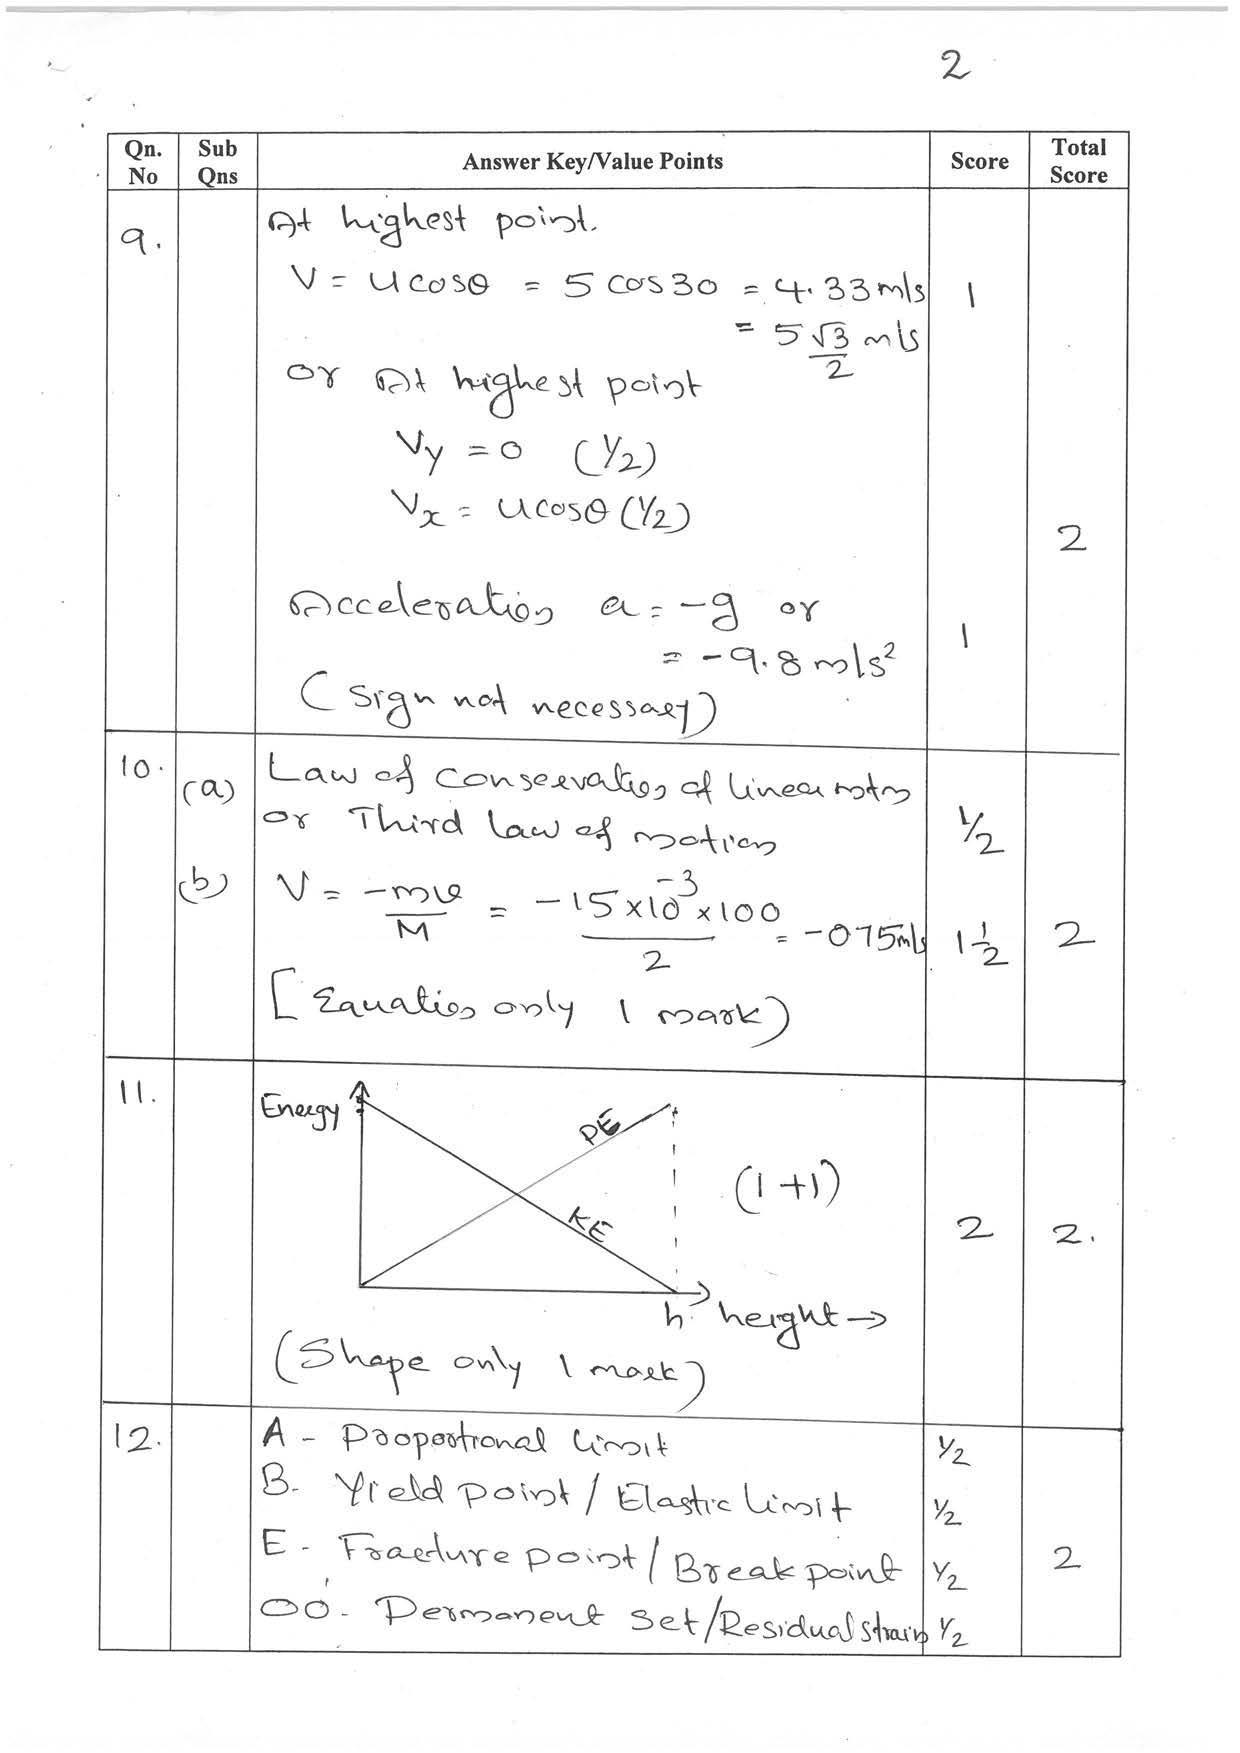 2
Qn. No
Sub Qns
Answer Key/Value Points
Score
Total Score
9.
At highest point.
V = u cosθ = 5 cos30 = 4.33 m/s
1
= 5 √3/2 m/s
or At highest point
Vy = 0 (1/2)
Vx = u cosθ (1/2)
2
Acceleration a = -g or
= -9.8 m/s²
1
(Sign not necessary)
10.
(a)
Law of conservation of linear mtm
or Third law of motion
1/2
(b)
V = -mv/M = -15×10⁻³×100/2 = -075m/s
1 1/2
2
[Equation only 1 mark)
11.
Energy
PE
KE
(1+1)
2
2.
h
height →
(Shape only 1 mark)
12.
A - Proportional limit
1/2
B. Yield point / Elastic limit
1/2
E - Fracture point / Break point
1/2
2
OO' - Permanent set/Residual strain
1/2